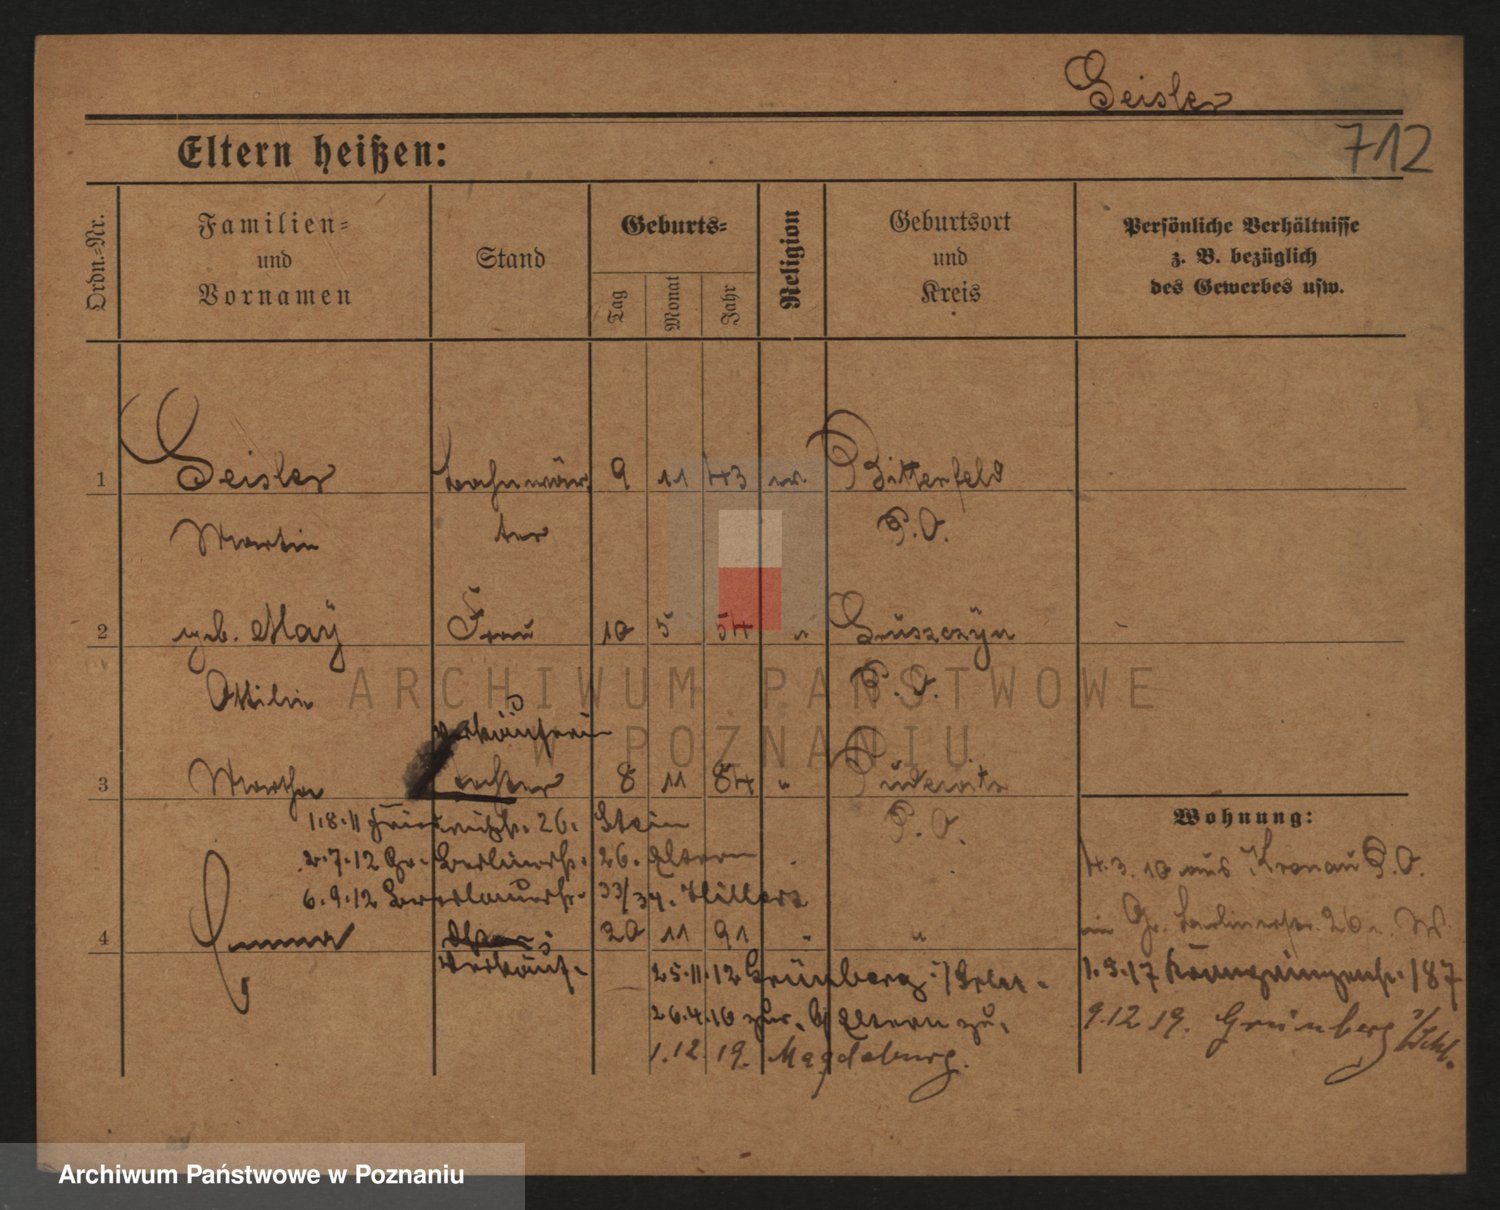 Geisler
712
Eltern heißen:
Ordn.-Nr.
Familien-
und
Vornamen
Stand
Geburts-
Tag
Monat
Jahr
Religion
Geburtsort
und
Kreis
Persönliche Verhältnisse
z. B. bezüglich
des Gewerbes usw.
1 Geisler Bahnwär- 9 11 43 ev. Bitterfeld
Martin ter P.O.
2 geb. May Frau 10 5 54 " Gruszczyn
Ottilie P.O.
Verkäuferin
3 Martha 8 11 84 " Pudewitz
P.O.
1.8.11 26.
2.7.12 Gr. Berlinerstr. 26. Eltern
6.9.12 33/34.
4 Emma 20 11 91 " "
Verkäuf-
25.11.12 Grünberg i/Schles.
26.4.16 zur. Eltern zu.
1.12.19. Magdeburg.
Wohnung:
4.3.10 aus P.O.
in Gr. Berlinerstr. 26
1.3.17 187
9.12.19. Grünberg i/Schl.
ARCHIWUM PAŃSTWOWE
W POZNANIU
Archiwum Państwowe w Poznaniu